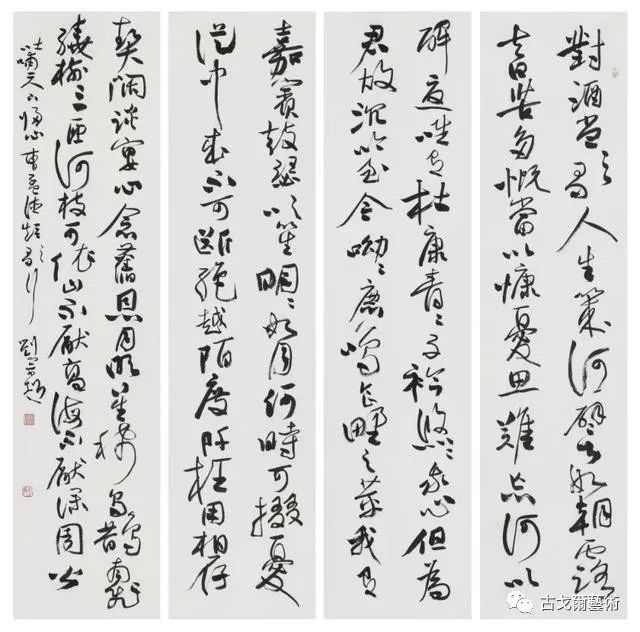 對酒當歌人生幾何譬如朝露
去日苦多慨當以慷憂思難忘何以
解憂唯有杜康青々子衿悠々我心但為
君故沉吟至今呦々鹿鳴食野之苹我有
嘉賓鼓瑟吹笙明々如月何時可掇憂
從中來不可斷絕越陌度阡枉用相存
契闊談宴心念舊恩月明星稀烏鵲南飛
繞樹三匝何枝可依山不厭高海不厭深周公
吐哺天下歸心 曹孟德短歌行 劉
古戈爾藝術